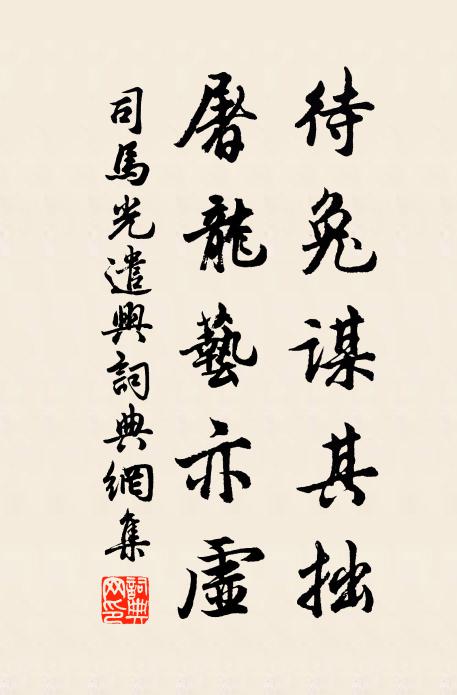 待兔謀其拙
屠龍藝亦虛
司馬光遣興詞典網集
詞典网印